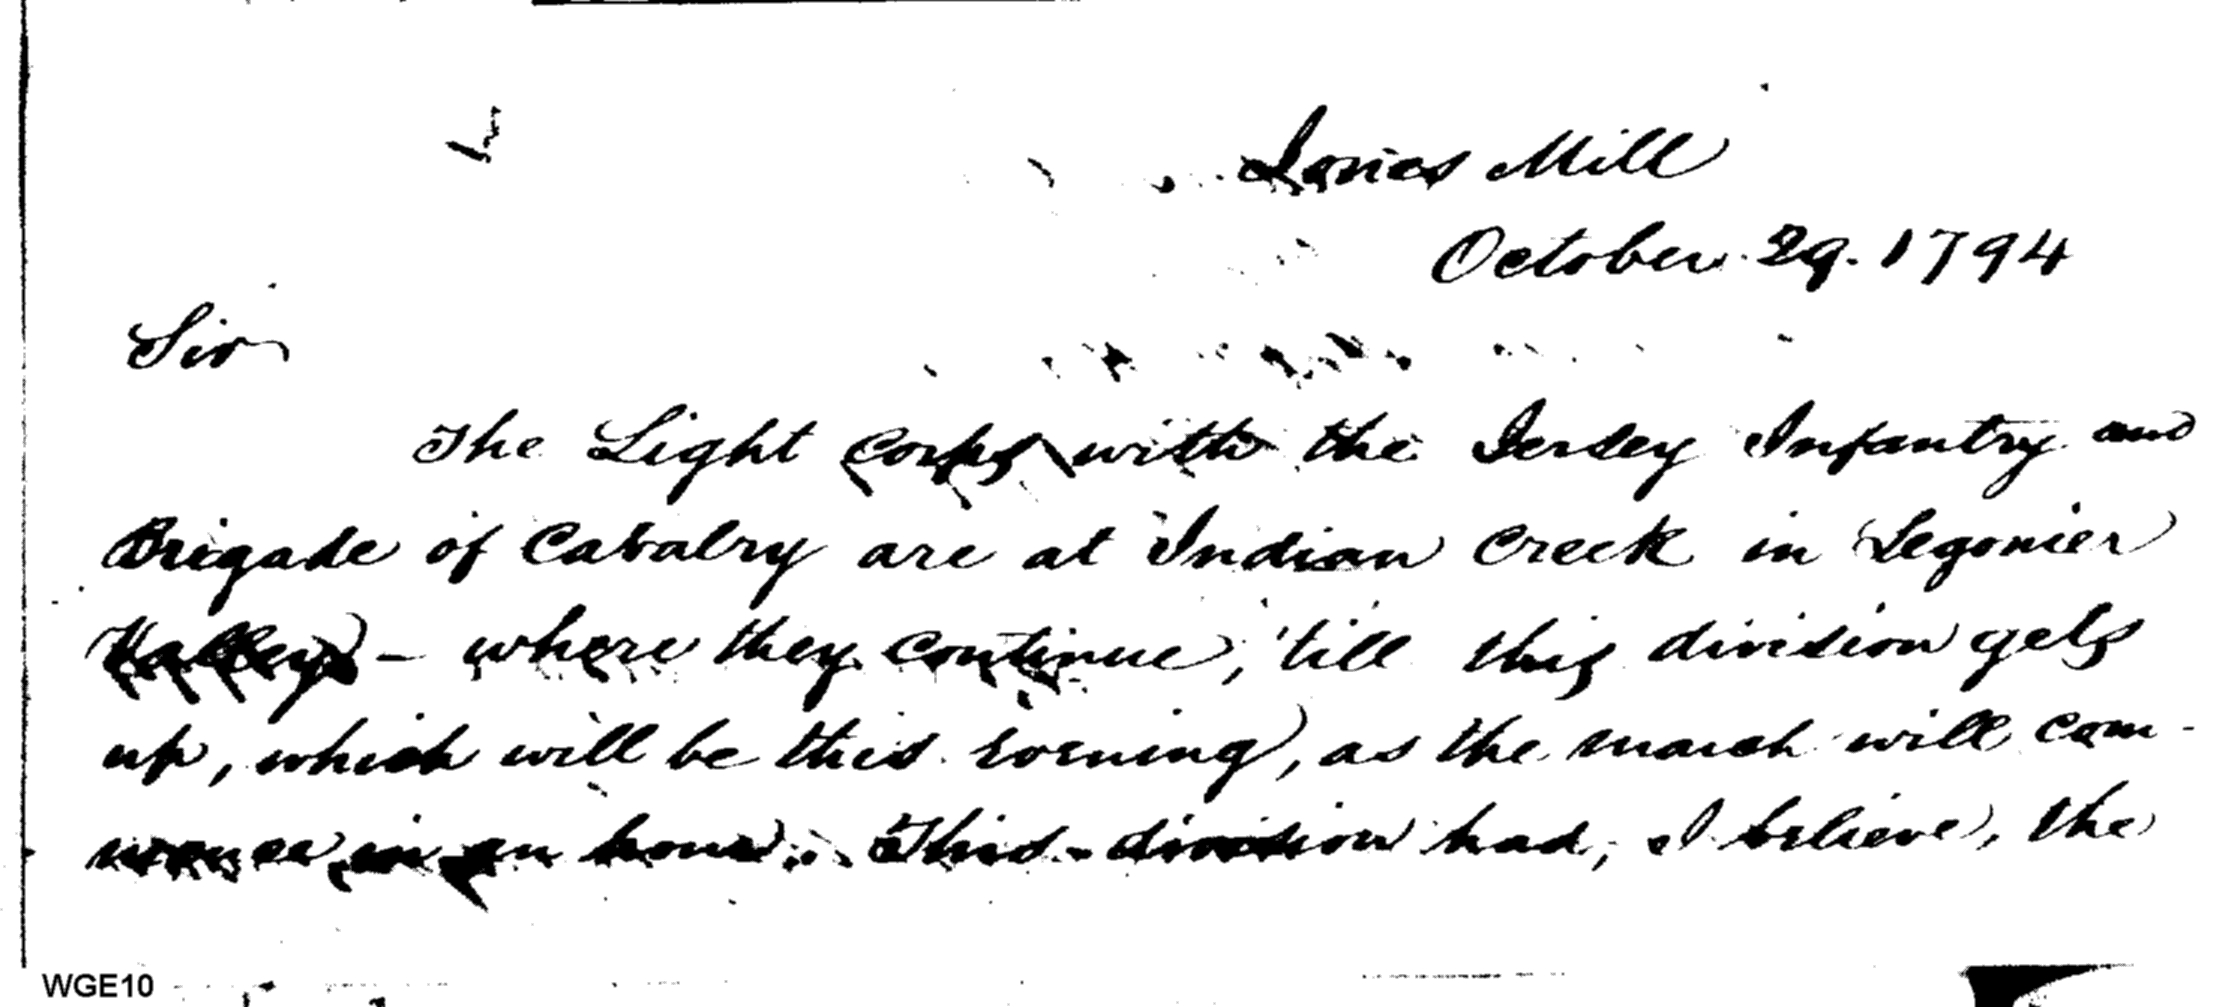 Jones Mill
October 29. 1794
Sir
The Light corps with the Jersey Infantry and
Brigade of Cavalry are at Indian Creek in Legonier
Valley – where they continue, 'till this division gets
up, which will be this evening, as the march will com-
mence in an hour. This division had, I believe, the
WGE10